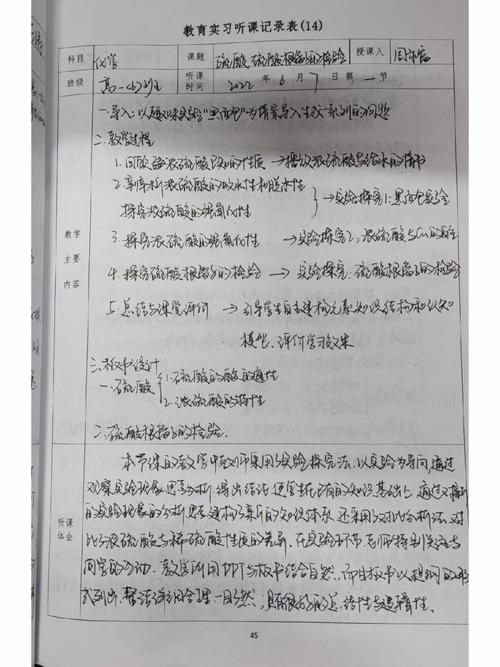 教育实习听课记录表(14)
科目 化学 课题 硫酸、硫酸根离子的检验 授课人
班级 高一(4)班 听课时间 2022年6月7日第一节
教学主要内容
一、导入:以趣味实验"黑面包"为情景导入生成一系列的问题
二、教学过程
1. 回顾稀浓硫酸的性质 → 播放浓硫酸
2. 掌握分析浓硫酸的吸水性和脱水性
探究浓硫酸的强氧化性 → 实验探究1:黑面包实验
3. 探究浓硫酸的强氧化性 → 实验探究2,浓硫酸与Cu的
4. 探究硫酸根离子的检验 → 实验探究:硫酸根离子的检验
5. 总结与课堂评价 → 引导学生自主建构元素知识结构和认知
模型,评价学习效果
三、板书设计
一、硫酸 1. 硫酸的酸的通性
2. 浓硫酸的特性
二、硫酸根离子的检验.
听课体会
本节课的教学中老师采用了实验探究法,以实验为导向,通过
观察实验现象,思考分析,得出结论,使学生在已有的知识基础上,通过
的实验现象的分析,建构了新的知识体系,还采用了对比分析法,对
比了浓硫酸与稀硫酸性质的差异,在实验环节,老师特别关注与
同学的互动,教学所用PPT与板书结合自然,而且板书以提纲的形
式列出,一目了然,具有很好的总结性与逻辑性.
45